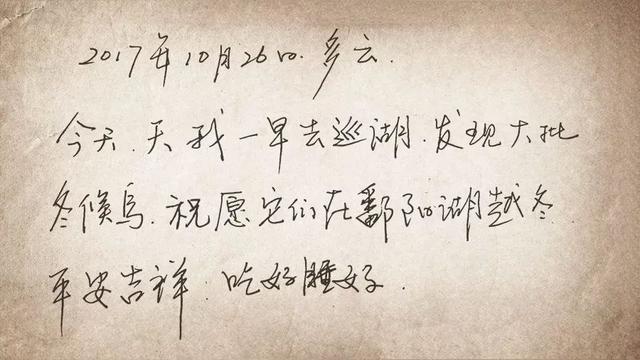 2017年10月26日.多云.
今天.天我一早去巡湖.发现大批
冬候鸟.祝愿它们在鄱阳湖越冬
平安吉祥.吃好睡好.